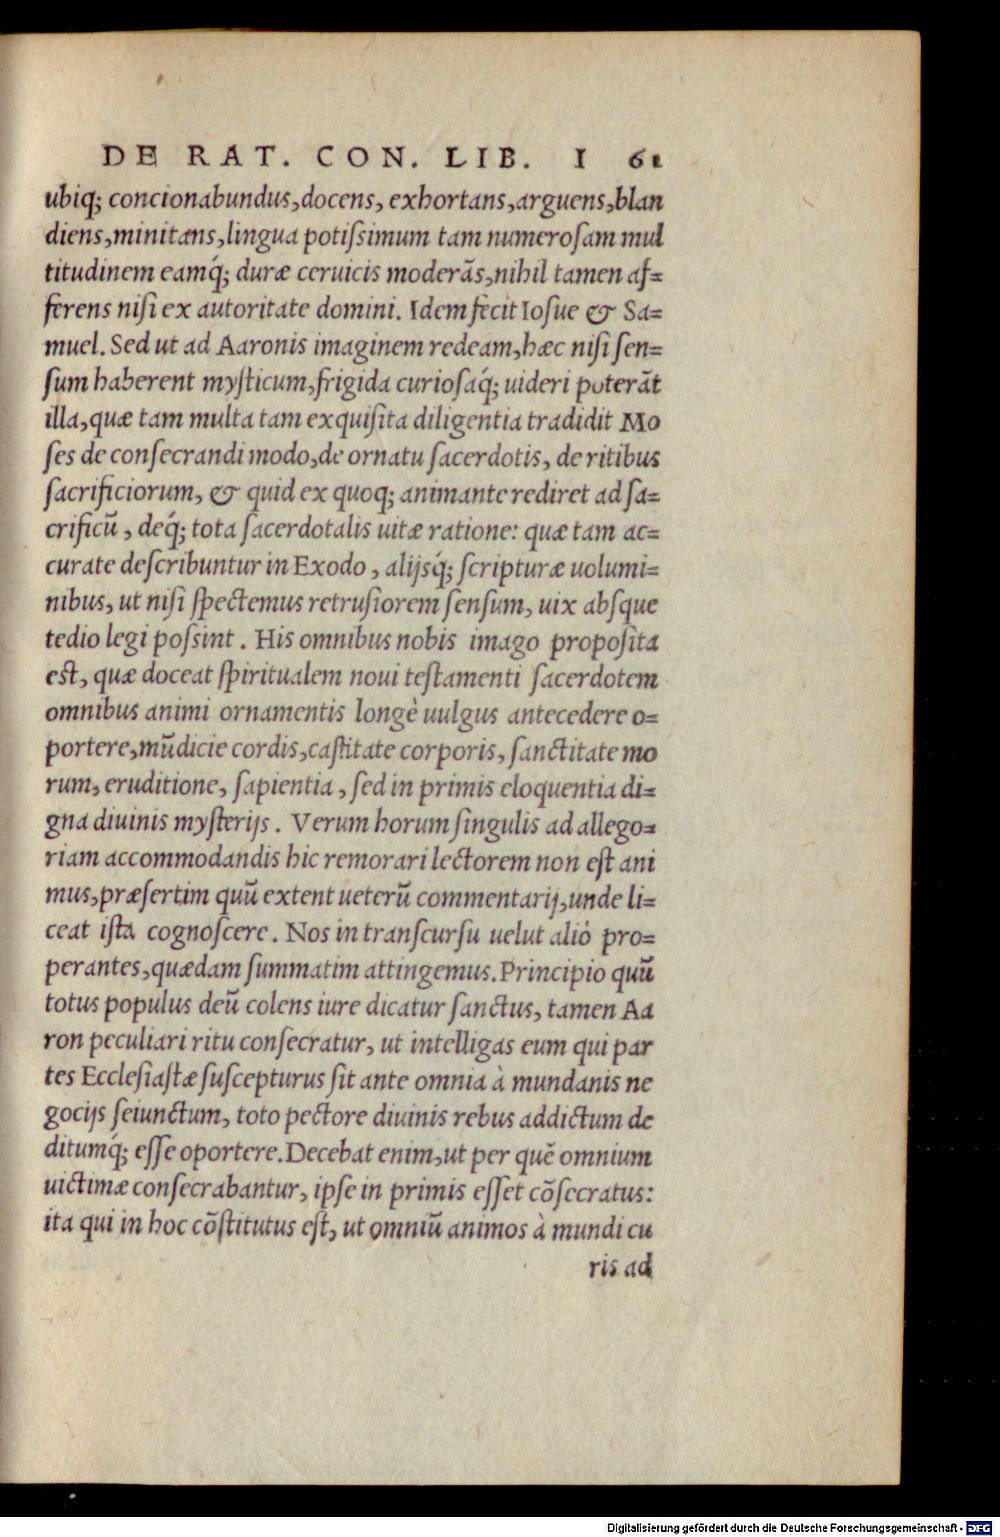 DE RAT. CON. LIB. I 61
ubiq; concionabundus, docens, exhortans, arguens, blan
diens, minitans, lingua potiſsimum tam numeroſam mul
titudinem eamq́; duræ ceruicis moderãs, nihil tamen af=
ferens niſi ex autoritate domini. Idem fecit Ioſue & Sa=
muel. Sed ut ad Aaronis imaginem redeam, hæc niſi ſen=
ſum haberent myſticum, frigida curioſaq́; uideri poterãt
illa, quæ tam multa tam exquiſita diligentia tradidit Mo
ſes de conſecrandi modo, de ornatu ſacerdotis, de ritibus
ſacrificiorum, & quid ex quoq; animante rediret ad ſa=
crificũ, deq́; tota ſacerdotalis uitæ ratione: quæ tam ac=
curate deſcribuntur in Exodo, alijsq́; ſcripturæ uolumi=
nibus, ut niſi ſpectemus retruſiorem ſenſum, uix abſque
tedio legi poſsint. His omnibus nobis imago propoſita
est, quæ doceat ſpiritualem noui teſtamenti ſacerdotem
omnibus animi ornamentis longè uulgus antecedere o=
portere, mũdicie cordis, caſtitate corporis, ſanctitate mo
rum, eruditione, ſapientia, ſed in primis eloquentia di=
gna diuinis myſterijs. Verum horum ſingulis ad allego=
riam accommodandis hic remorari lectorem non eſt ani
mus, præſertim quũ extent ueterũ commentarij, unde li=
ceat iſta cognoſcere. Nos in transcurſu uelut aliò pro=
perantes, quædam ſummatim attingemus. Principio quũ
totus populus deũ colens iure dicatur ſanctus, tamen Aa
ron peculiari ritu conſecratur, ut intelligas eum qui par
tes Eccleſiaſtæ ſuſcepturus ſit ante omnia à mundanis ne
gocijs ſeiunctum, toto pectore diuinis rebus addictum de
ditumq́; eſſe oportere. Decebat enim, ut per quẽ omnium
uictimæ conſecrabantur, ipſe in primis eſſet cõſecratus:
ita qui in hoc cõſtitutus eſt, ut omniũ animos à mundi cu
ris ad
Digitalisierung gefördert durch die Deutsche Forschungsgemeinschaft - DFG